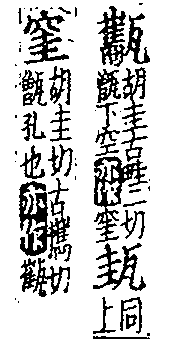 胡圭古畦二切
甑下空亦作窐
同上
窐
胡圭切古攜切
甑孔也亦作